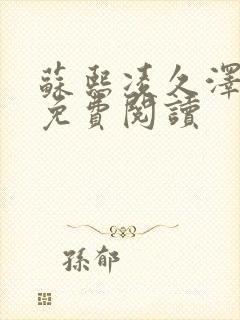 蘇熙凌久澤
免費閱讀
孫郁